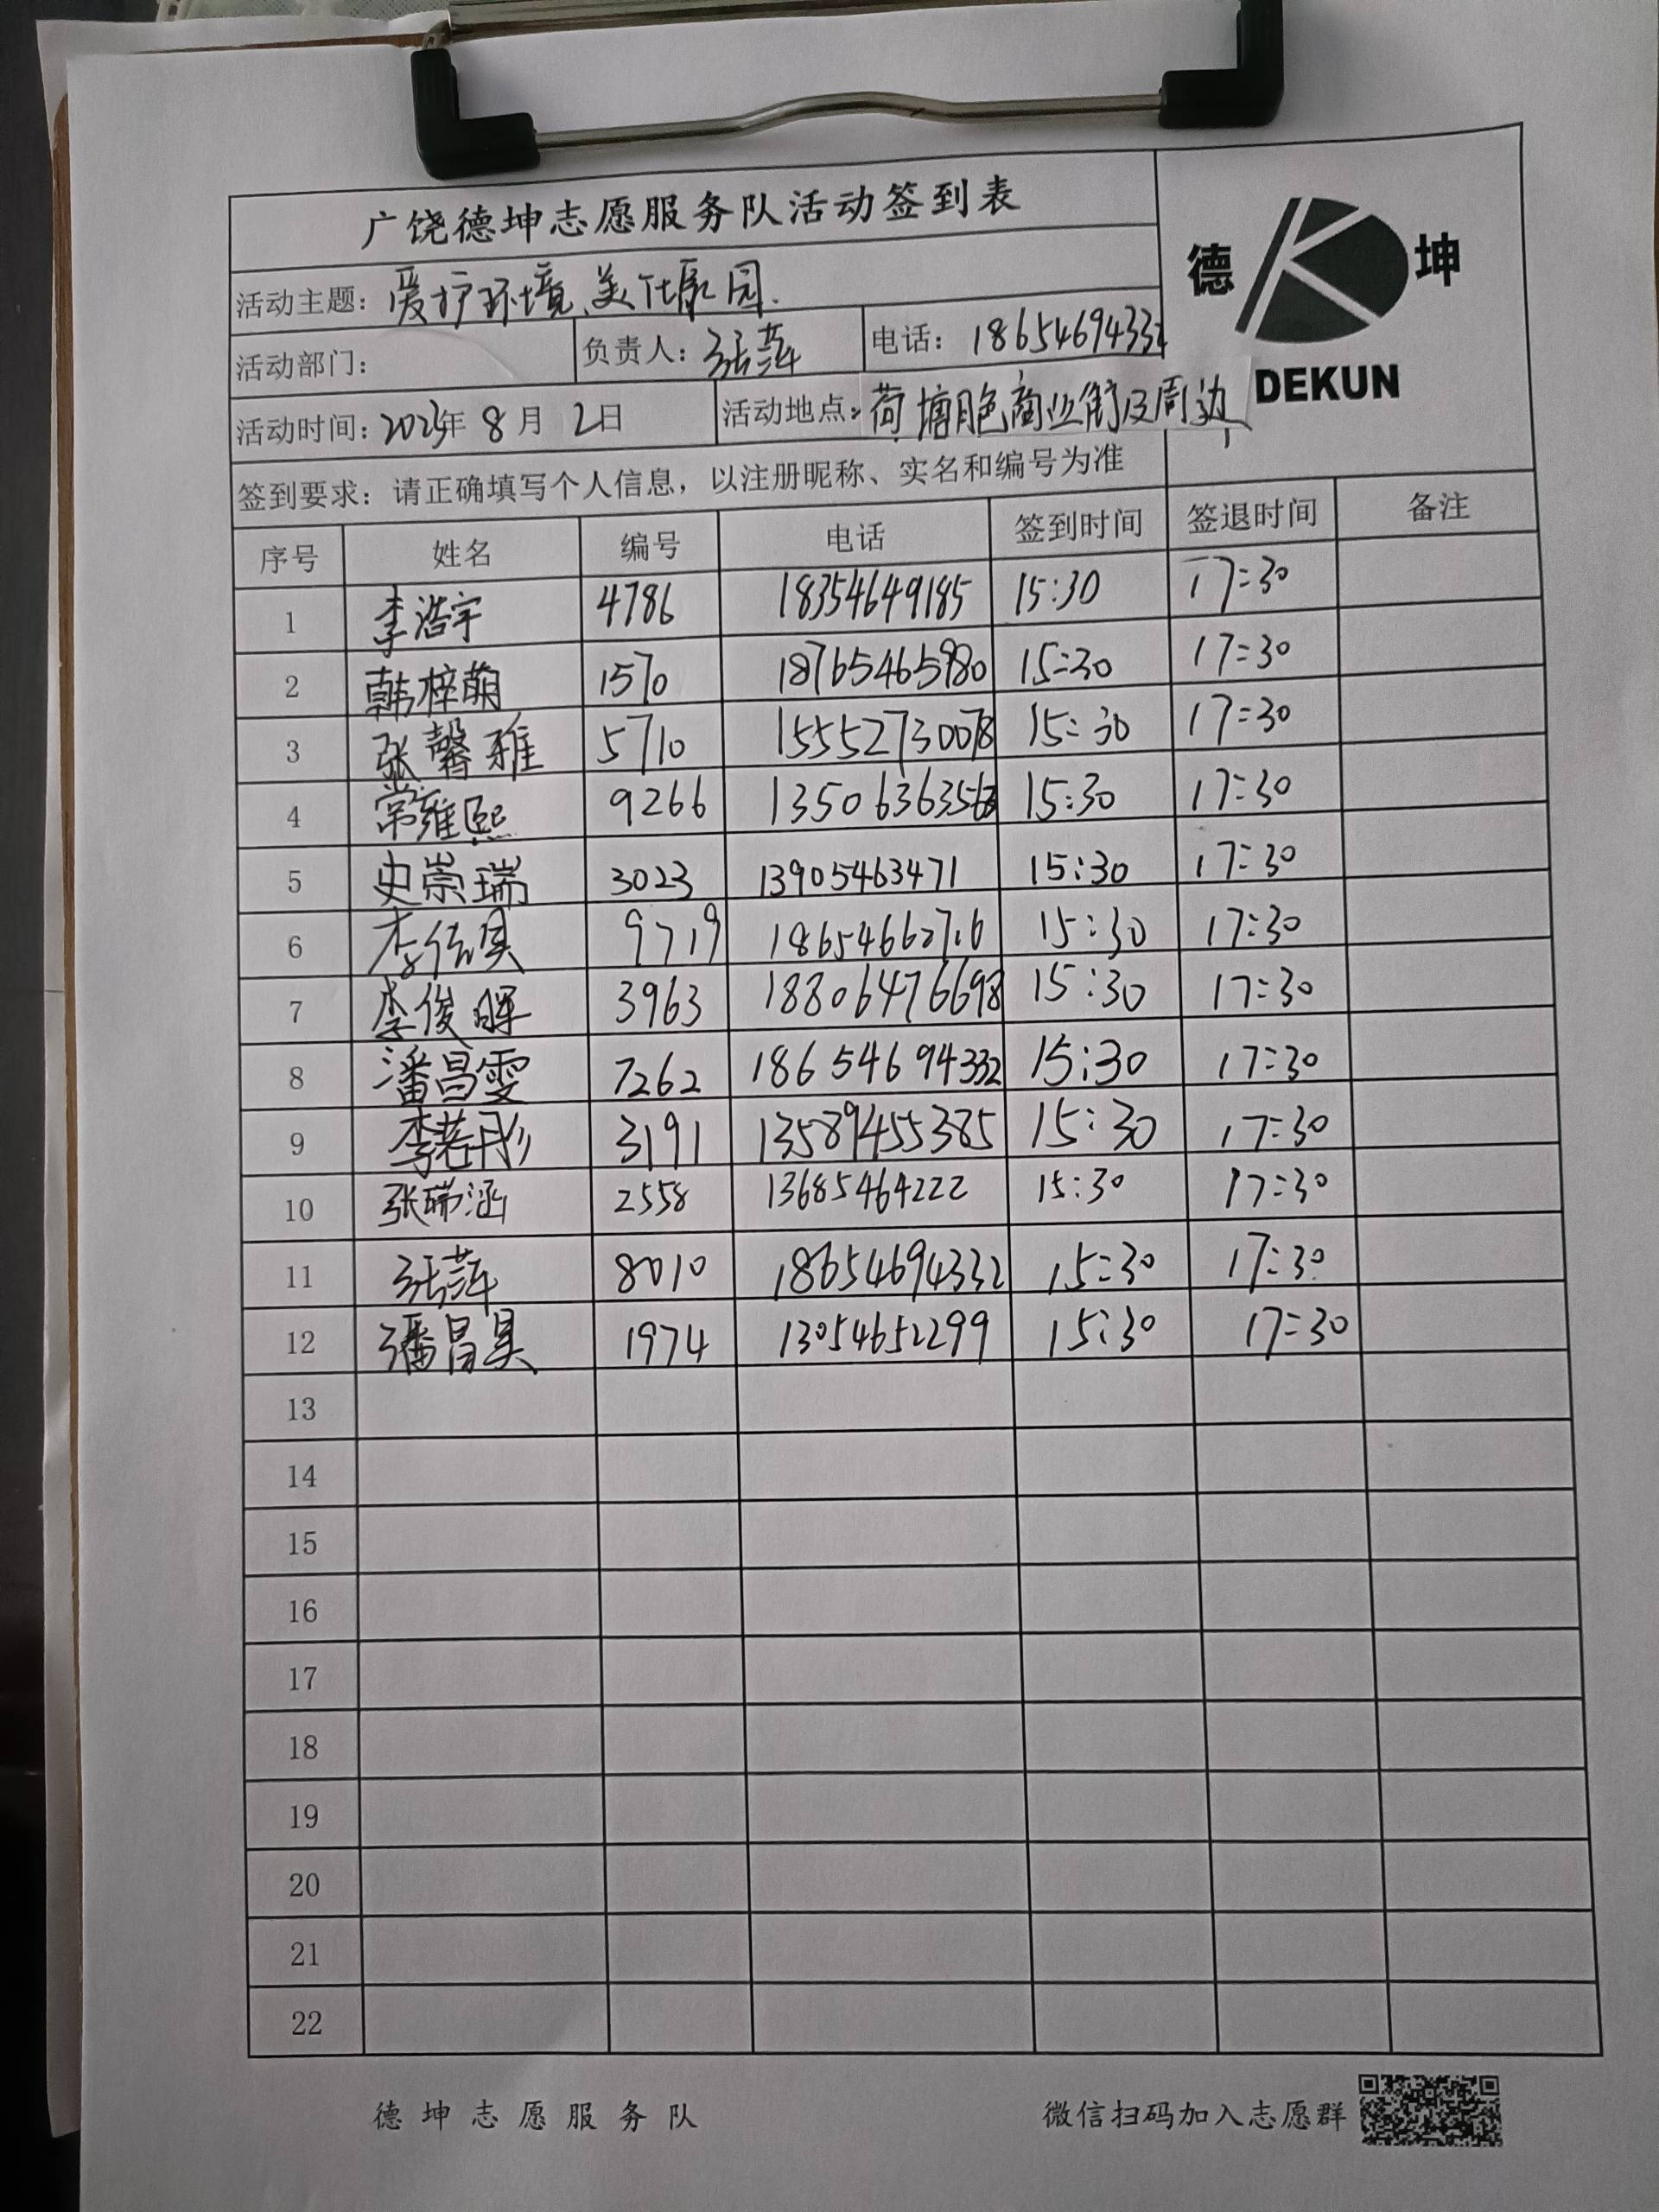 广饶德坤志愿服务队活动签到表
德 坤
DEKUN
活动主题：爱护环境、美化家园.
活动部门： 负责人：张萍 电话：18654694332
活动时间：2023年 8月 2日 活动地点：荷塘月色商业街及周边
签到要求：请正确填写个人信息，以注册昵称、实名和编号为准
序号 姓名 编号 电话 签到时间 签退时间 备注
1 李浩宇 4786 18354649185 15:30 17:30
2 韩梓萌 1570 18765465980 15:30 17:30
3 张馨雅 5710 15552730078 15:30 17:30
4 常雍熙 9266 15:30 17:30
5 史崇瑞 3023 13905463471 15:30 17:30
6 9719 18654662716 15:30 17:30
7 李俊晖 3963 18806476698 15:30 17:30
8 潘昌雯 7262 18654694332 15:30 17:30
9 李若彤 3191 13589455385 15:30 17:30
10 张瑞涵 2558 13685464222 15:30 17:30
11 张萍 8010 18654694332 15:30 17:30
12 潘昌昊 1974 13054652299 15:30 17:30
13
14
15
16
17
18
19
20
21
22
德坤志愿服务队 微信扫码加入志愿群